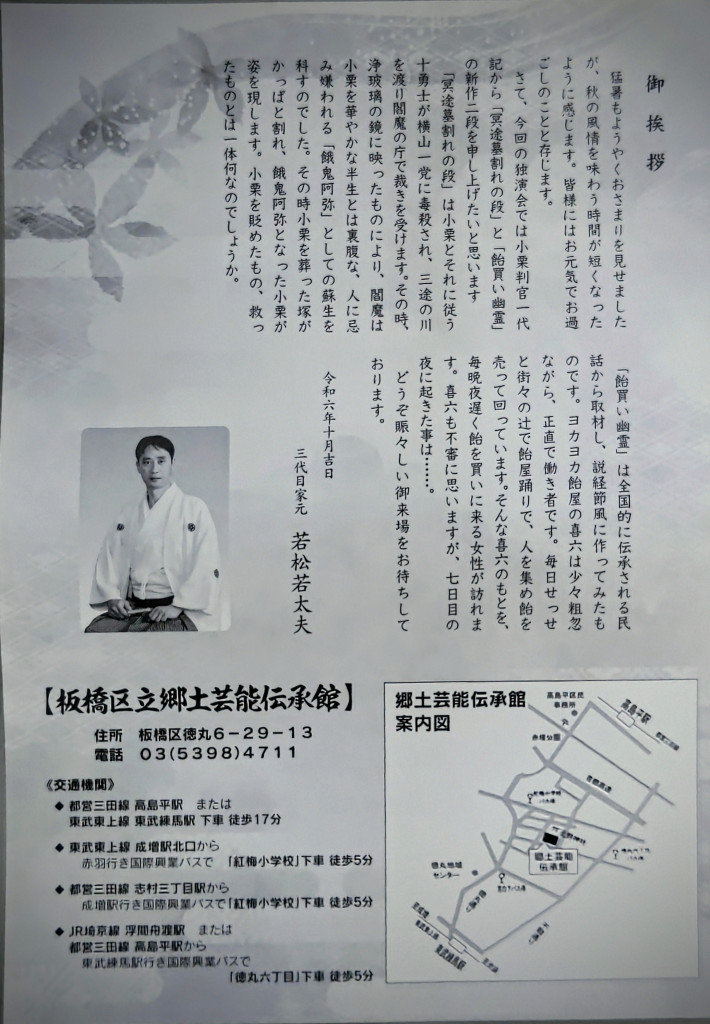 御挨拶
猛暑もようやくおさまりを見せました
が、秋の風情を味わう時間が短くなった
ように感じます。皆様にはお元気でお過
ごしのことと存じます。
さて、今回の独演会では小栗判官一代
記から「冥途墓割れの段」と「飴買い幽霊」
の新作二段を申し上げたいと思います
「冥途墓割れの段」は小栗とそれに従う
十勇士が横山一党に毒殺され、三途の川
を渡り閻魔の庁で裁きを受けます。その時、
浄玻璃の鏡に映ったものにより、閻魔は
小栗を華やかな半生とは裏腹な、人に忌
み嫌われる「餓鬼阿弥」としての蘇生を
科すのでした。その時小栗を葬った塚が
かっぱと割れ、餓鬼阿弥となった小栗が
姿を現します。小栗を貶めたもの、救っ
たものとは一体何なのでしょうか。
「飴買い幽霊」は全国的に伝承される民
話から取材し、説経節風に作ってみたも
のです。ヨカヨカ飴屋の喜六は少々粗忽
ながら、正直で働き者です。毎日せっせ
と街々の辻で飴屋踊りで、人を集め飴を
売って回っています。そんな喜六のもとを、
毎晩夜遅く飴を買いに来る女性が訪れま
す。喜六も不審に思いますが、七日目の
夜に起きた事は……。
どうぞ賑々しい御来場をお待ちして
おります。
令和六年十月吉日
三代目家元 若松若太夫
【板橋区立郷土芸能伝承館】
住所 板橋区徳丸6-29-13
電話 03(5398)4711
《交通機関》
◆ 都営三田線 高島平駅 または
東武東上線 東武練馬駅 下車 徒歩17分
◆ 東武東上線 成増駅北口から
赤羽行き国際興業バスで 「紅梅小学校」下車 徒歩5分
◆ 都営三田線 志村三丁目駅から
成増駅行き国際興業バスで「紅梅小学校」下車 徒歩5分
◆ JR埼京線 浮間舟渡駅 または
都営三田線 高島平駅から
東武練馬駅行き国際興業バスで
「徳丸六丁目」下車 徒歩5分
郷土芸能伝承館
案内図
高島平区民
事務所
高島平駅
赤塚公園
郷土芸能
伝承館
徳丸地域
センター
東武練馬駅